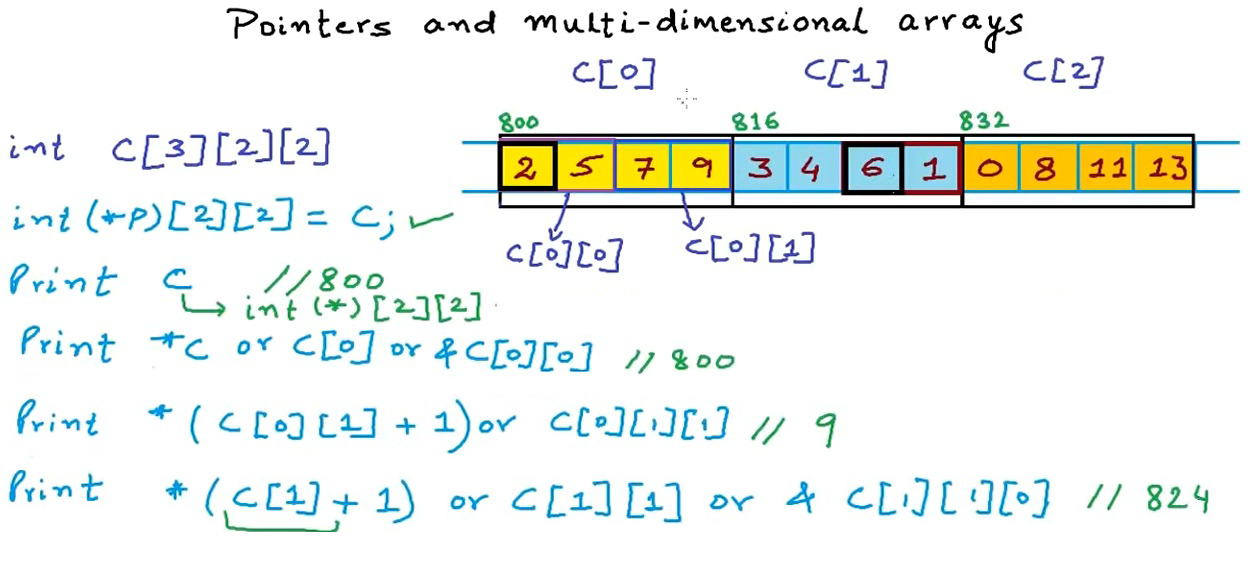 Pointers and multi-dimensional arrays
C[0] C[1] C[2]
800 816 832
int C[3][2][2]
2 5 7 9 3 4 6 1 0 8 11 13
int (*P)[2][2] = C; ✓
C[0][0] C[0][1]
Print C //800
int (*)[2][2]
Print *C or C[0] or &C[0][0] // 800
Print *(C[0][1] + 1) or C[0][1][1] // 9
Print *(C[1] + 1) or C[1][1] or & C[1][1][0] // 824